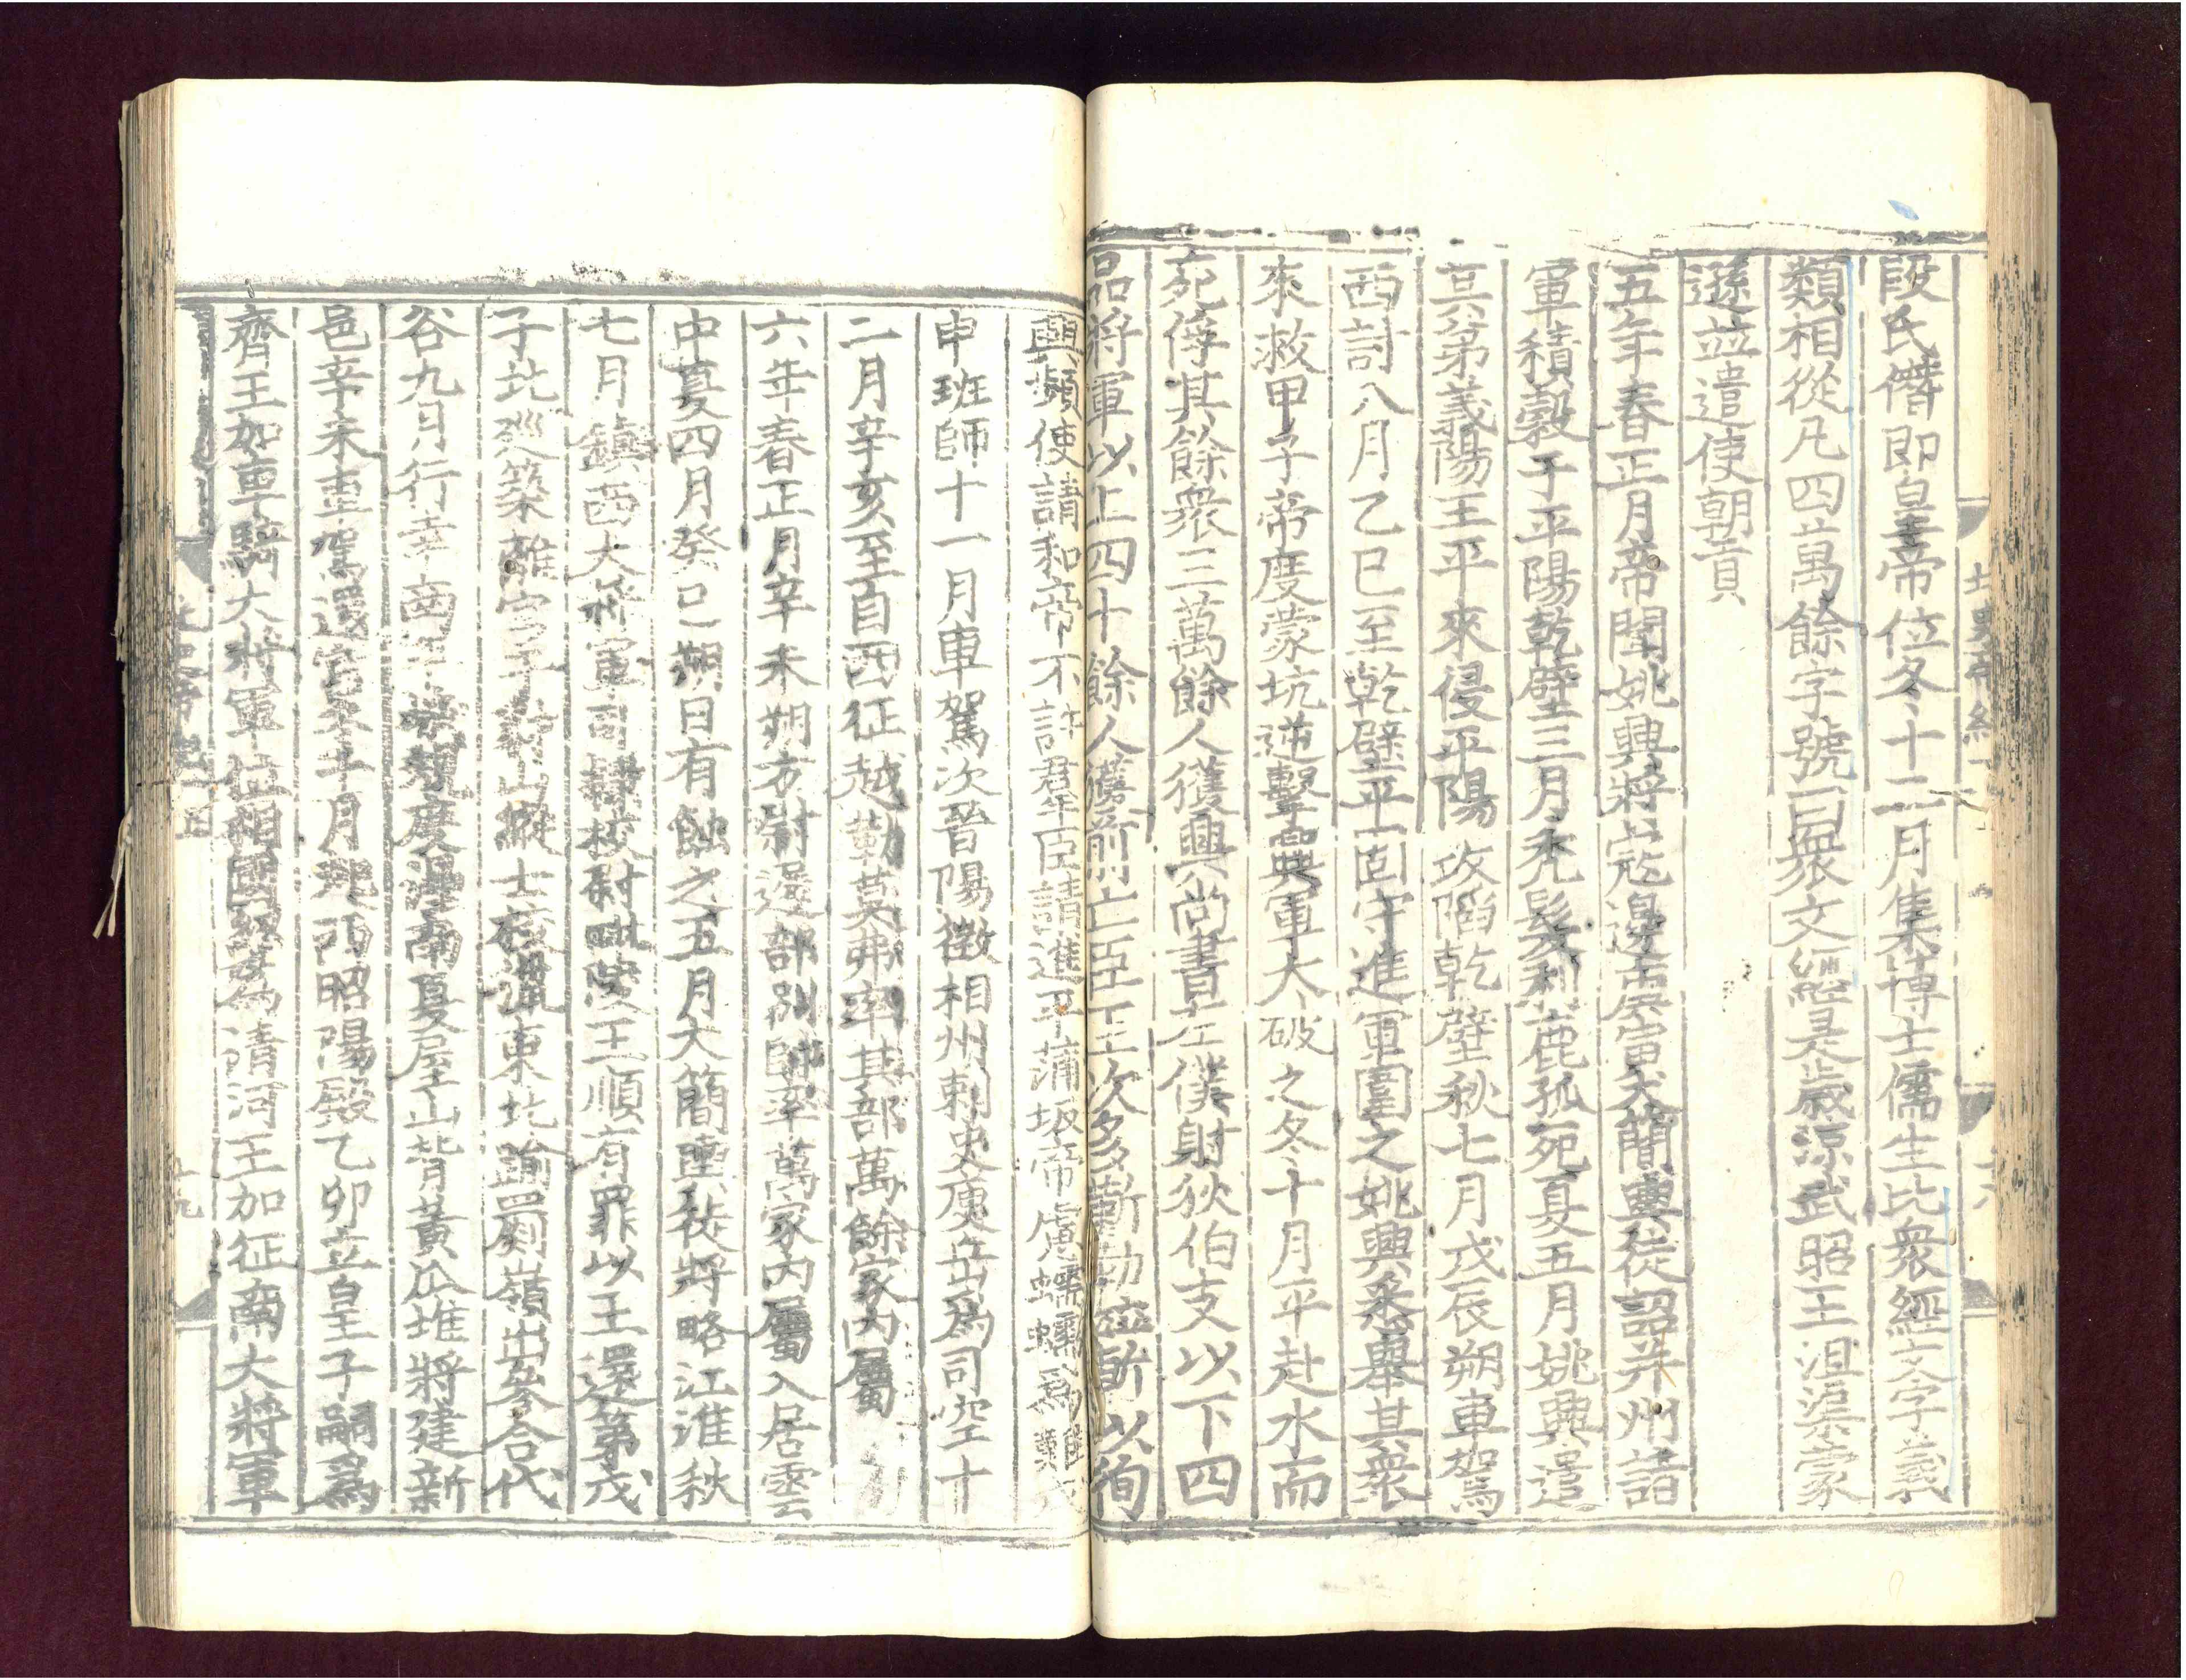 北史帝紀一
段氏僭即皇帝位冬十二月集博士儒生比衆經文字義
類相從凡四萬餘字號曰衆文經是歲涼武昭王沮渠蒙
遜並遣使朝貢
五年春正月帝聞姚興將寇邊庚寅大簡輿徒詔并州諸
軍積穀于平陽乾壁三月禿髮利鹿孤死夏五月姚興遣
其弟義陽王平來侵平陽攻陷乾壁秋七月戊辰朔車駕
西討八月乙巳至乾壁平固守進軍圍之姚興悉舉其衆
來救甲子帝度蒙坑逆擊興軍大破之冬十月平赴水而
死俘其餘衆三萬餘人獲興尚書左僕射狄伯支以下四
品將軍以上四十餘人獲前亡臣王次多靳勒並斬以徇
興頻使請和帝不許羣臣請進平蒲坂帝慮蠕蠕爲難戊
申班師十一月車駕次晉陽徵相州刺史庾岳爲司空十
二月辛亥至自西征越勤莫弗率其部萬餘家內屬
六年春正月辛未朔方尉遲部別帥率萬家內屬入居雲
中夏四月癸巳朔日有蝕之五月大簡輿徒將略江淮秋
七月鎮西大將軍司隸校尉毗陵王順有罪以王還第戊
子北巡築離宮于豺山縱士校獵東北踰罽嶺出參合代
谷九月行幸南平城規度㶟南夏屋山背黃瓜堆將建新
邑辛未車駕還宮冬十月起西昭陽殿乙卯立皇子嗣爲
齊王加車騎大將軍位相國紹爲清河王加征南大將軍
北史帝紀一上
十九